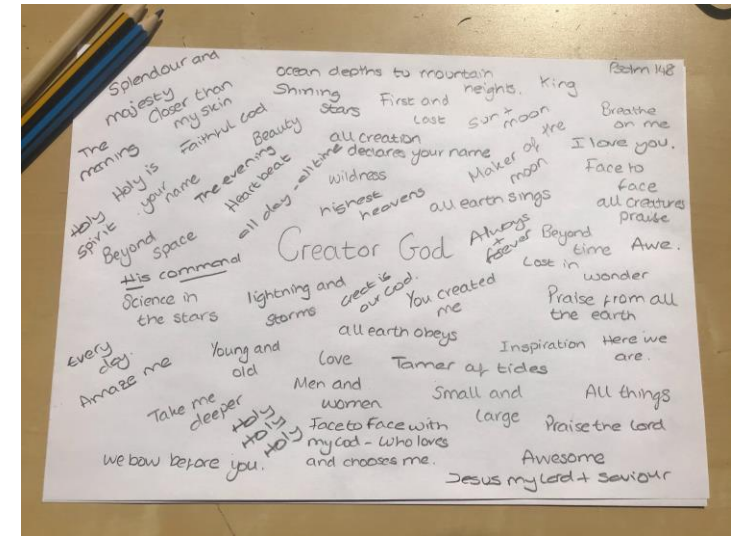 Psalm 148
Splendour and
majesty
Closer than
my skin
ocean depths to mountain
heights.
King
Shining
stars
First and
Last
Sun +
moon
Breathe
on me
The
morning
Faithful God
Beauty
all creation
declares your name
Maker of the
moon
I love you.
Holy is
your name
The evening
Heartbeat
all day - all time
wildness
Face to
face
Holy
Spirit
highest
heavens
all earth sings
all creatures
praise
Beyond
space
Creator God
Always
+
forever
Beyond
time
Awe.
His command
Lost in
wonder
Science in
the stars
lightning and
storms
Great is
our God.
You created
me
Praise from all
the earth
all earth obeys
Every
day.
Amaze me
Young and
old
Love
Tamer of tides
Inspiration
Here we
are.
Take me
deeper
Men and
women
Small and
large
All things
Holy
Holy
Holy
Face to Face with
my God - who loves
and chooses me.
Praise the Lord
we bow before you.
Awesome
Jesus my Lord + Saviour